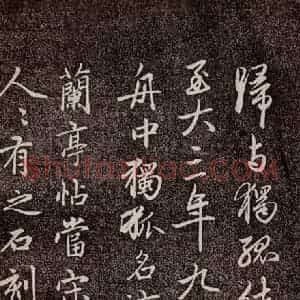 歸与獨孤
至大三年九
舟中獨孤名
蘭亭帖當宋
人〻有之石刻